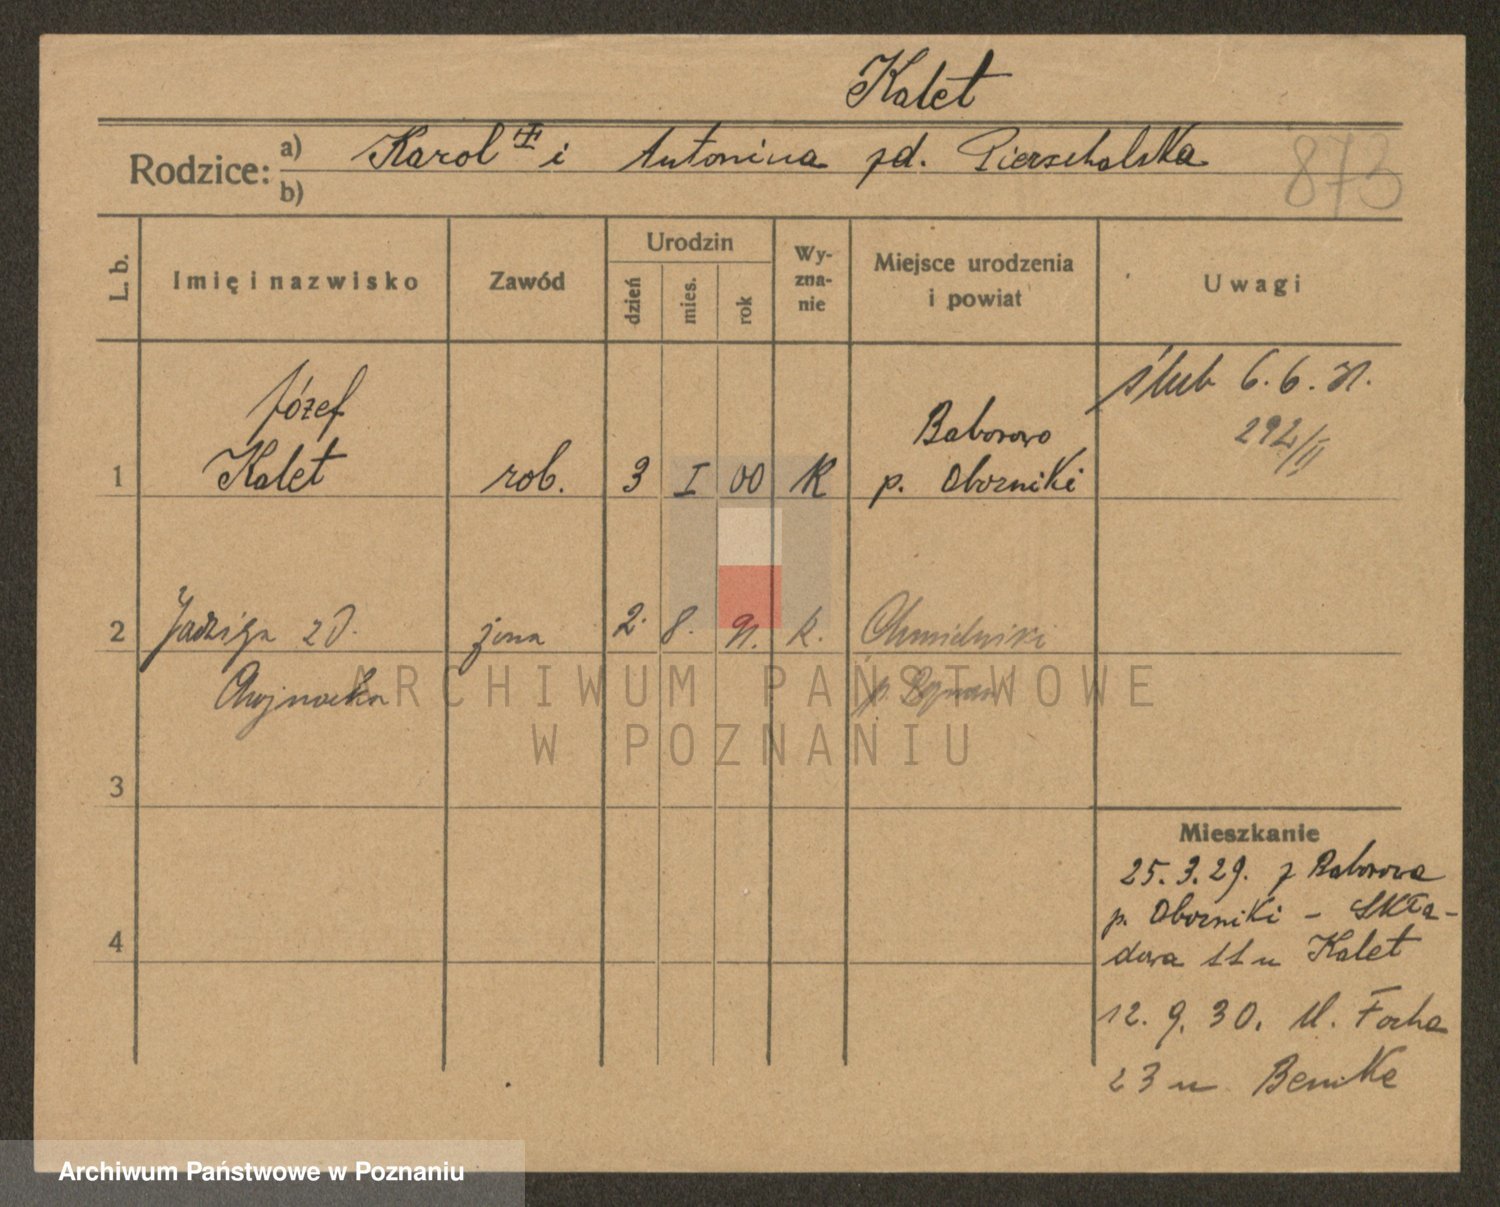 Kalet
Rodzice: a) Karol ✝ i Antonina zd. Pierzchalska
b)
873
L. b. Imię i nazwisko Zawód Urodzin dzień mies. rok Wy-zna-nie Miejsce urodzenia i powiat Uwagi
ślub 6. 6. 31.
292/II
Józef Baborowo
1 Kalet rob. 3 I 00 K p. Oborniki
2 Jadwiga zd. żona 2. 8. k.
ARCHIWUM PAŃSTWOWE
W POZNANIU
3
4
Mieszkanie
25. 3. 29. z Baborowa
p. Oborniki – Skła-
dowa 11 u Kalet
12. 9. 30. Ul. Focha
23 u Benike
Archiwum Państwowe w Poznaniu